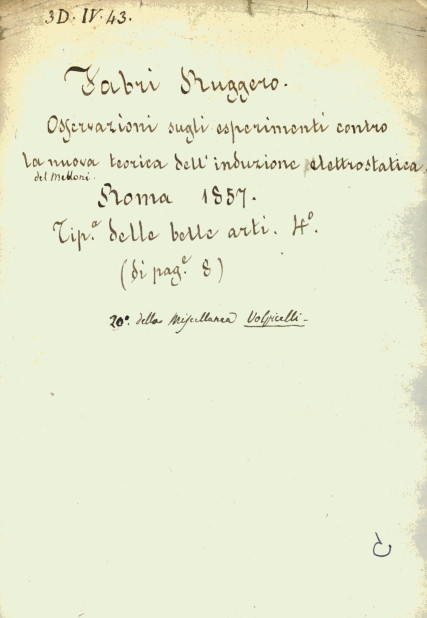 3D. IV. 43.
Fabri Ruggero.
Osservazioni sugli esperimenti contro
la nuova teorica dell'induzione elettrostatica,
del Melloni.
Roma 1857.
Tip.ª delle belle arti. 4°.
(di pag.e 8)
20°. della Miscellanea Volpicelli